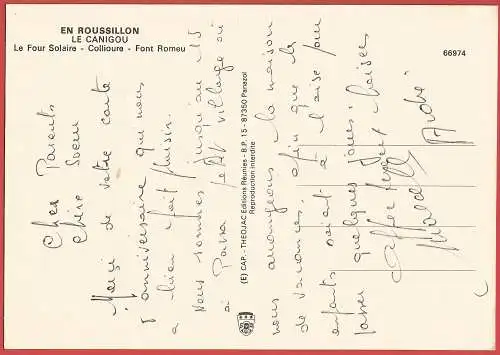 EN ROUSSILLON
LE CANIGOU
Le Four Solaire - Collioure - Font Romeu
66974
(E) CAP. - THEOJAC Editions Réunies - B.P. 15 - 87350 Panazol
Reproduction interdite
Cher Parents
Chère Soeur
Merci de votre carte
d'anniversaire qui nous
a bien fait plaisir.
Nous sommes jusqu'au 15
à Passa petit village où
nous arrangeons la maison
de vacances afin que les
enfants soient à l'aise pour
passer quelques jours.
Baisers
André